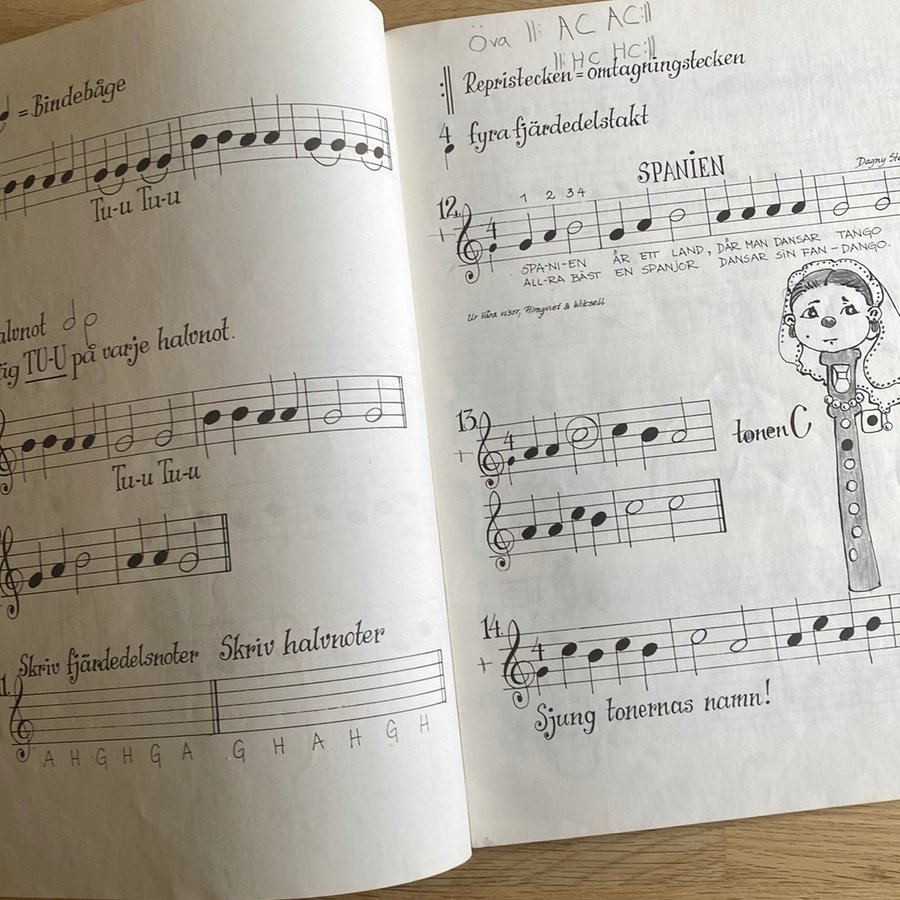 = Bindebåge
Tu-u Tu-u
på varje halvnot.
TU-U
Tu-u Tu-u
Skriv fjärdedelsnoter Skriv halvnoter
A H G H G A G H A H G H
Öva ‖: AC AC:‖
‖: HC HC:‖
Repristecken = omtagningstecken
4 fyra fjärdedelstakt
SPANIEN
Dagny
12. 1 2 3 4
4
SPA-NI-EN ÄR ETT LAND, DÄR MAN DANSAR TANGO
ALL-RA BÄST EN SPANJOR DANSAR SIN FAN-DANGO.
Ur Våra visor, Almqvist & Wiksell
13.
4
tonen C
14.
4
Sjung tonernas namn!